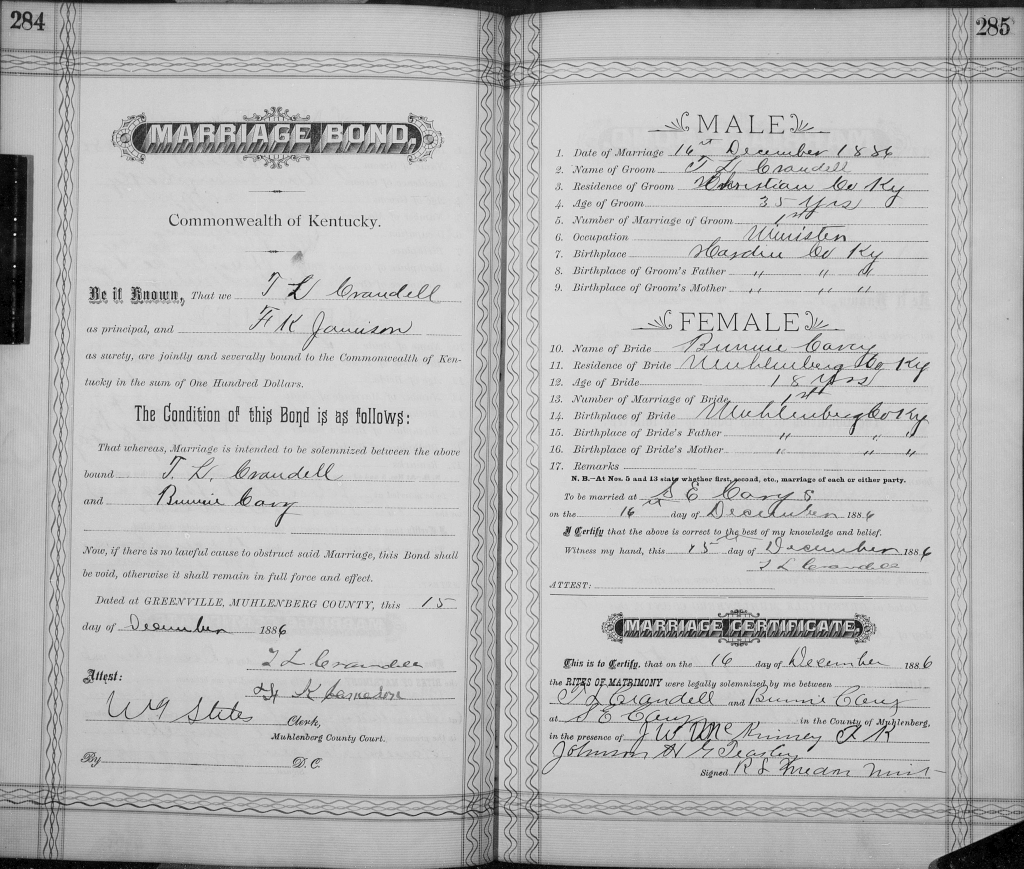 284
MARRIAGE BOND,
Commonwealth of Kentucky.
Be it Known, That we T L Crandell
as principal, and F K Jamison
as surety, are jointly and severally bound to the Commonwealth of Ken-
tucky in the sum of One Hundred Dollars.
The Condition of this Bond is as follows:
That whereas, Marriage is intended to be solemnized between the above
bound T. L. Crandell
and Bunnie Cary
Now, if there is no lawful cause to obstruct said Marriage, this Bond shall
be void, otherwise it shall remain in full force and effect.
Dated at GREENVILLE, MUHLENBERG COUNTY, this 15
day of December 1886
T L Crandell
Attest:
F K
Clerk,
Muhlenberg County Court.
By D.C.
285
MALE
1. Date of Marriage 16st December 1886
2. Name of Groom T L Crandell
3. Residence of Groom Christian Co Ky
4. Age of Groom 35 Yrs
5. Number of Marriage of Groom 1st
6. Occupation Minister
7. Birthplace Hardin Co Ky
8. Birthplace of Groom's Father " " "
9. Birthplace of Groom's Mother " " "
FEMALE
10. Name of Bride Bunnie Cary
11. Residence of Bride Muhlenberg Co Ky
12. Age of Bride 18 Yrs
13. Number of Marriage of Bride 1st
14. Birthplace of Bride Muhlenberg Co Ky
15. Birthplace of Bride's Father " " "
16. Birthplace of Bride's Mother " " "
17. Remarks
N. B.—At Nos. 5 and 13 state whether first, second, etc., marriage of each or either party.
To be married at S E Cary s
on the 16 day of December 1886
I Certify that the above is correct to the best of my knowledge and belief.
Witness my hand, this 15 day of December 1886
T L Crandell
ATTEST:
MARRIAGE CERTIFICATE.
This is to Certify, that on the 16 day of December 1886
the RITES OF MATRIMONY were legally solemnized by me between
T L Crandell and Bunnie Cary
at S E Cary in the County of Muhlenberg,
in the presence of J W McKinney F K
Johnson H G Teasley
Signed R L